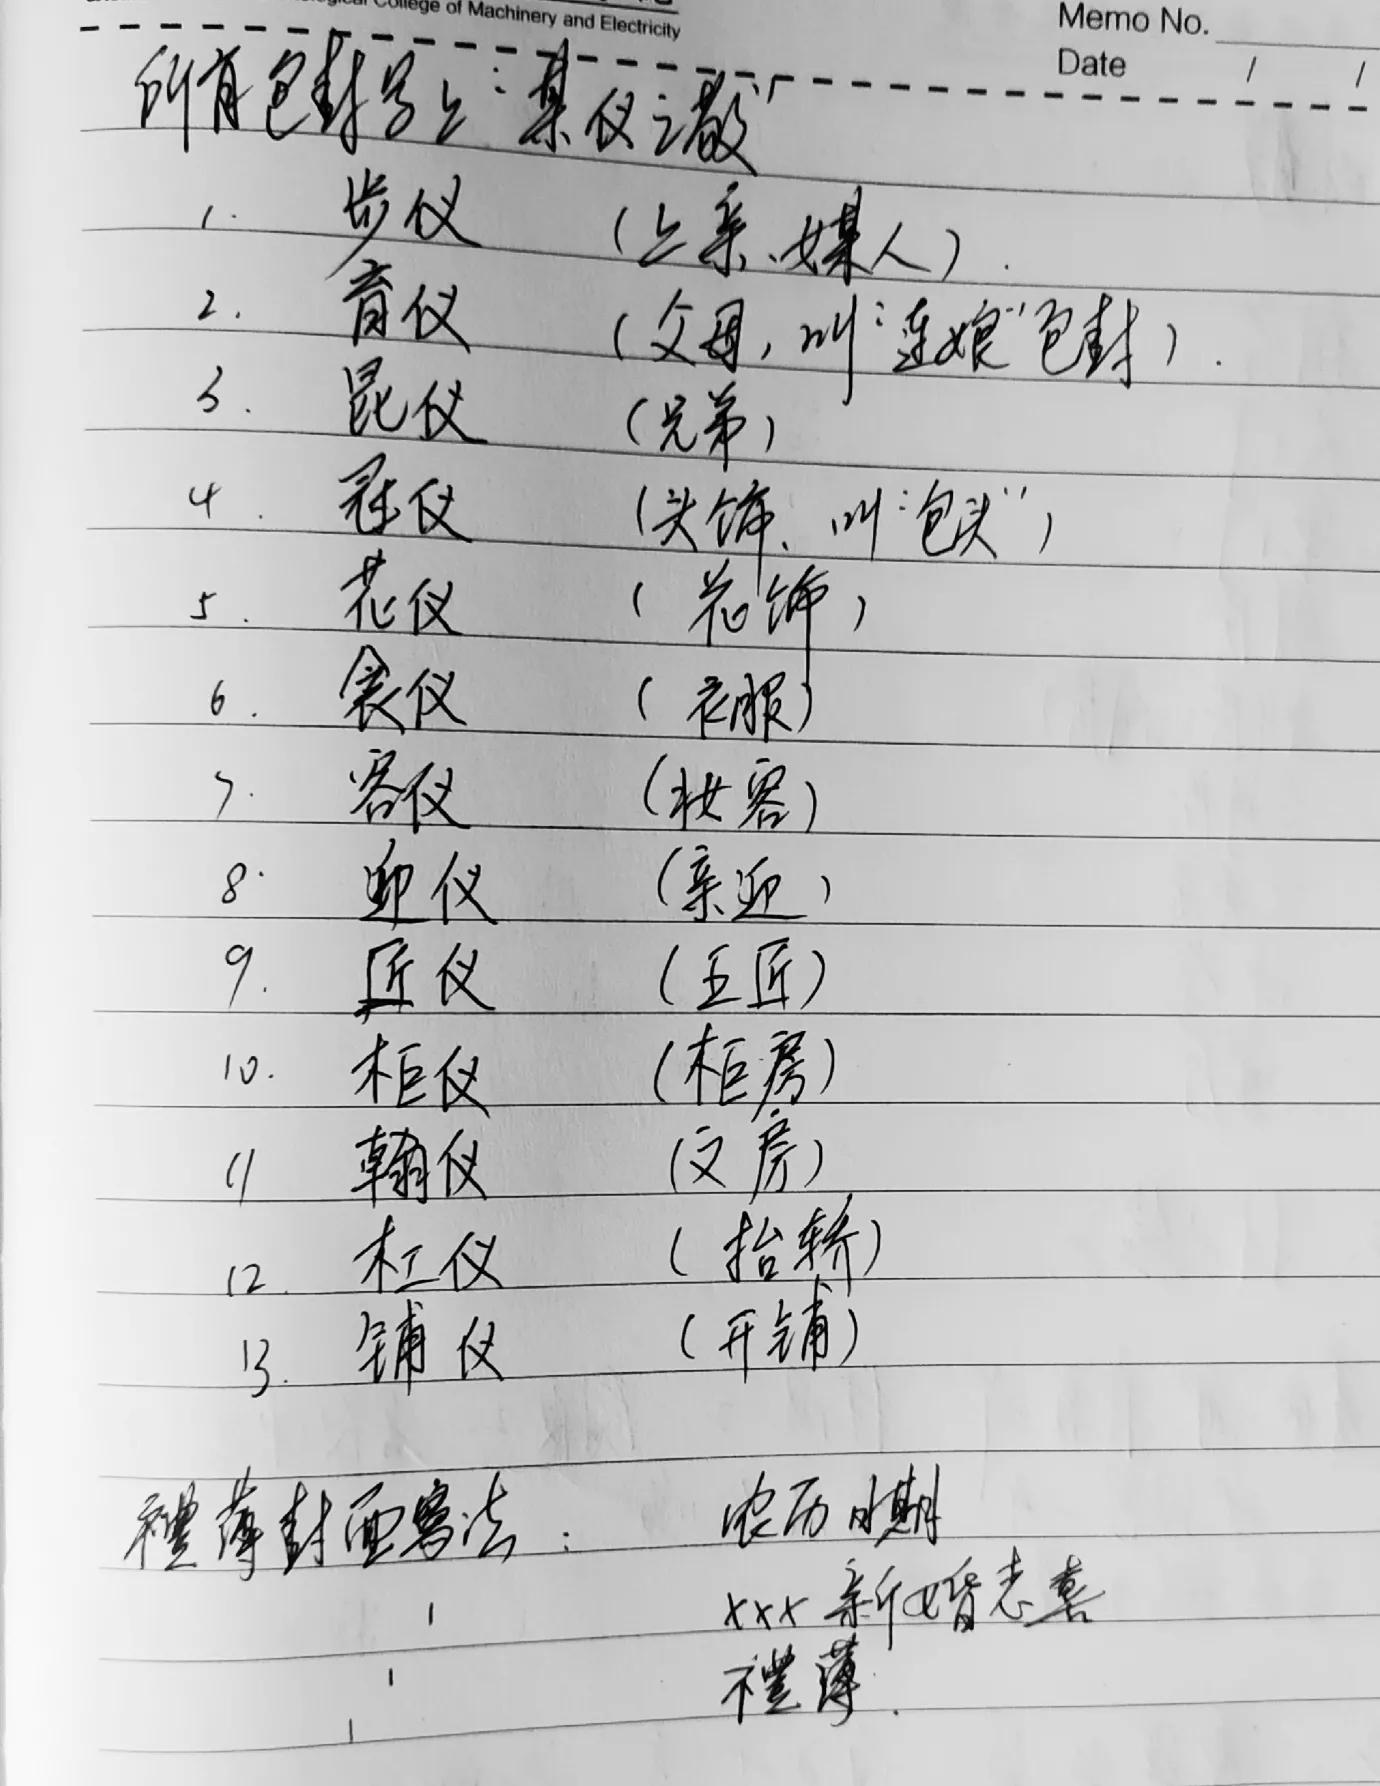 College of Machinery and Electricity
Memo No.
Date / /
所有包封写上“某仪之敬”
1. 步仪 (上亲、媒人).
2. 育仪 (父母, 叫“连娘”包封).
3. 昆仪 (兄弟)
4. 冠仪 (头饰、叫“包头”)
5. 花仪 (花饰)
6. 裳仪 (衣服)
7. 容仪 (妆容)
8. 迎仪 (亲迎)
9. 匠仪 (五匠)
10. 柜仪 (柜房)
11 翰仪 (文房)
12. 杠仪 (抬轿)
13. 铺仪 (开铺)
禮薄封面写法: 农历日期
xxx 新婚志喜
禮薄.